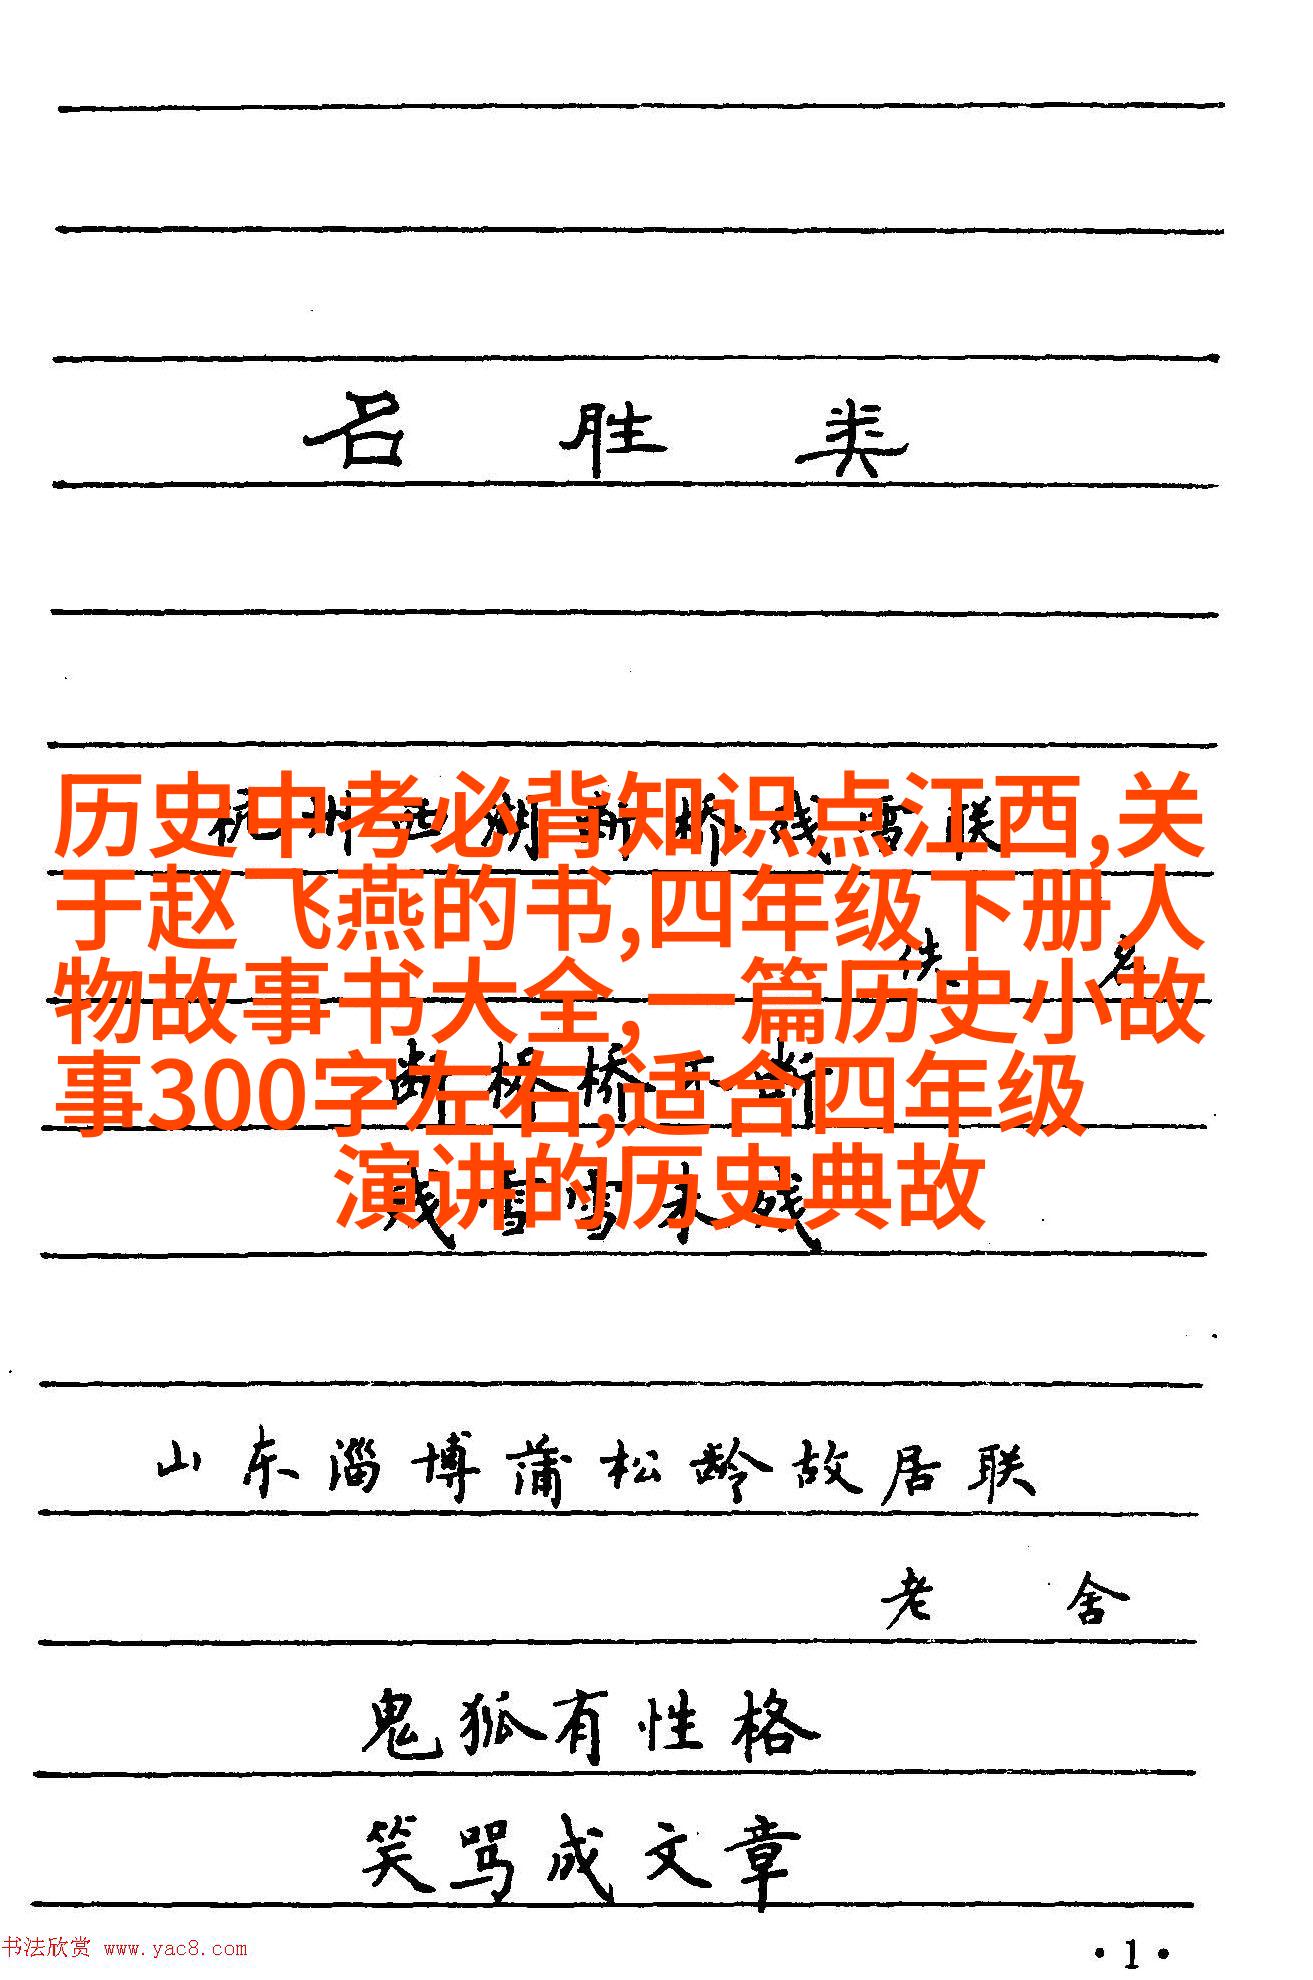 名胜类
杭州西湖断桥残雪联
历史中考必背知识点江西,关
于赵飞燕的书,四年级下册人
佚名
物故事书大全,一篇历史小故
断桥桥不断
事300字左右,适合四年级
残雪雪未残
演讲的历史典故
山东淄博蒲松龄故居联
老舍
鬼狐有性格
笑骂成文章
书法欣赏 www.yac8.com
·1·